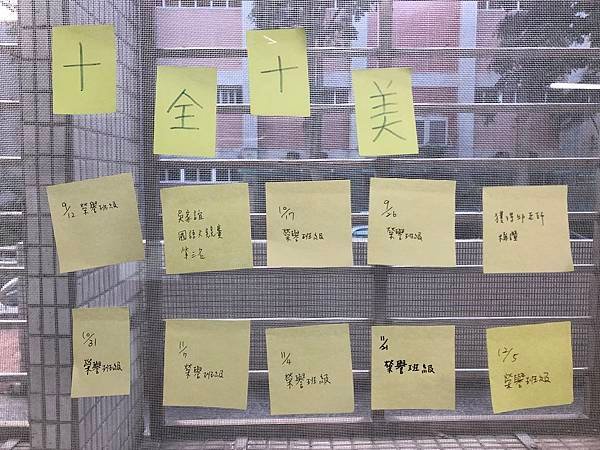 十全十美
9/12 榮譽班級
國語文競賽
第三名
10/17
榮譽班級
9/26
榮譽班級
獲得邱老師
稱讚
10/31
榮譽班級
11/7
榮譽班級
11/4
榮譽班級
榮譽班級
12/5
榮譽班級